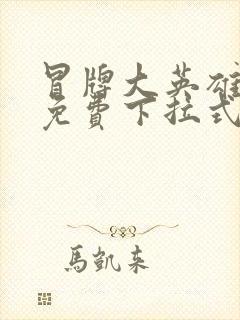 冒牌大英雄
免費下拉式
馬凱来